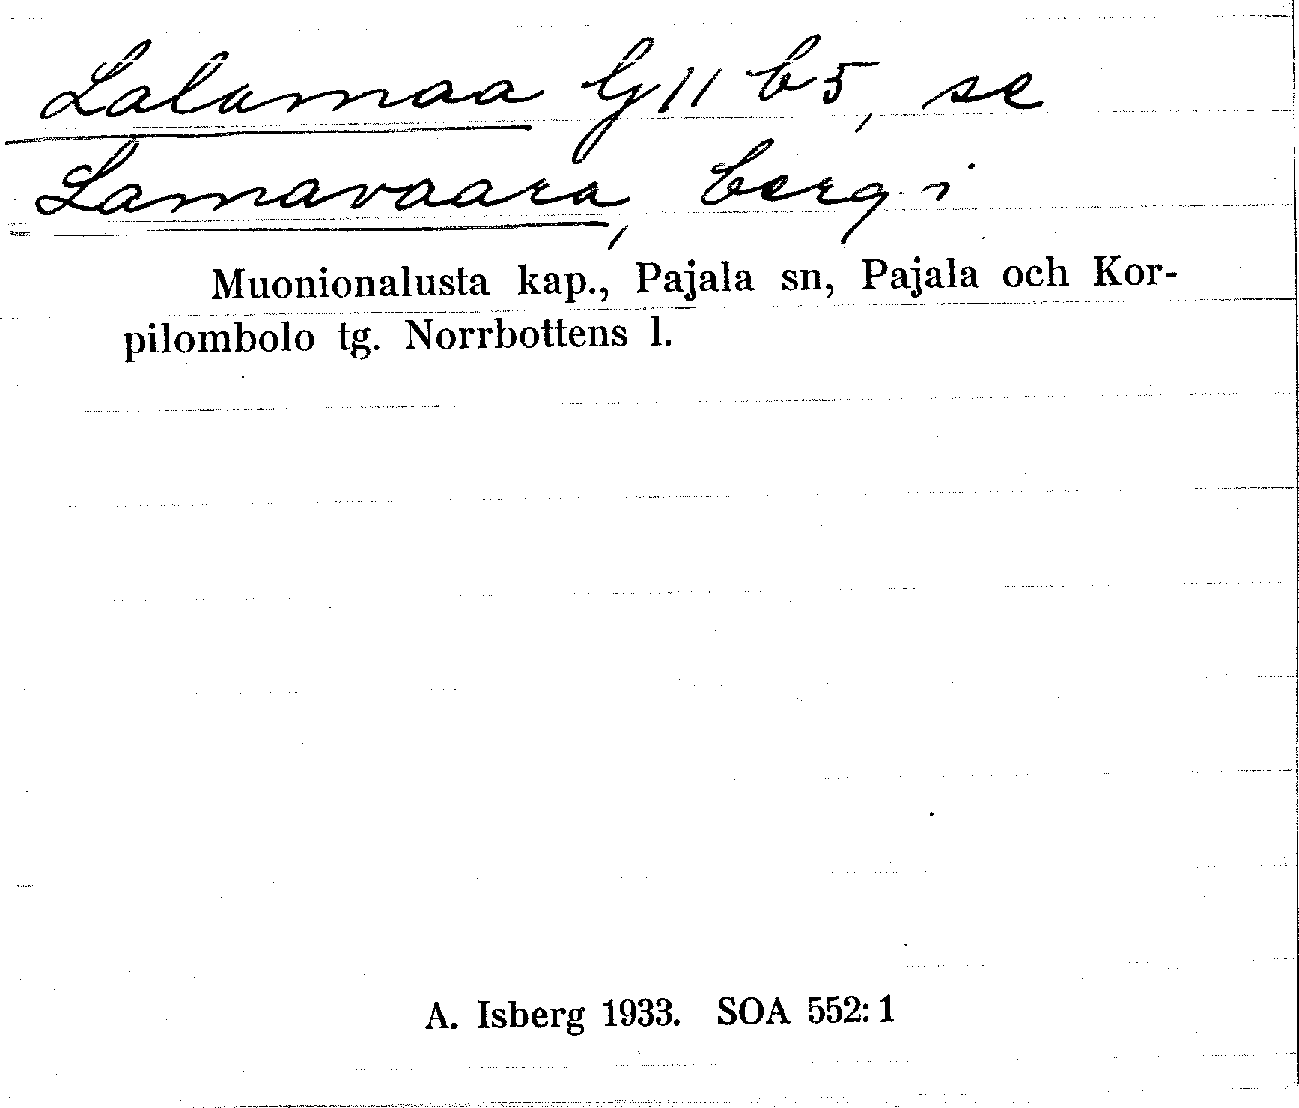 Lalumaa G 11 b 5, se
Lamavaara, berg i
Muonionalusta kap., Pajala sn, Pajala och Kor-
pilombolo tg. Norrbottens l.
A. Isberg 1933. SOA 552:1